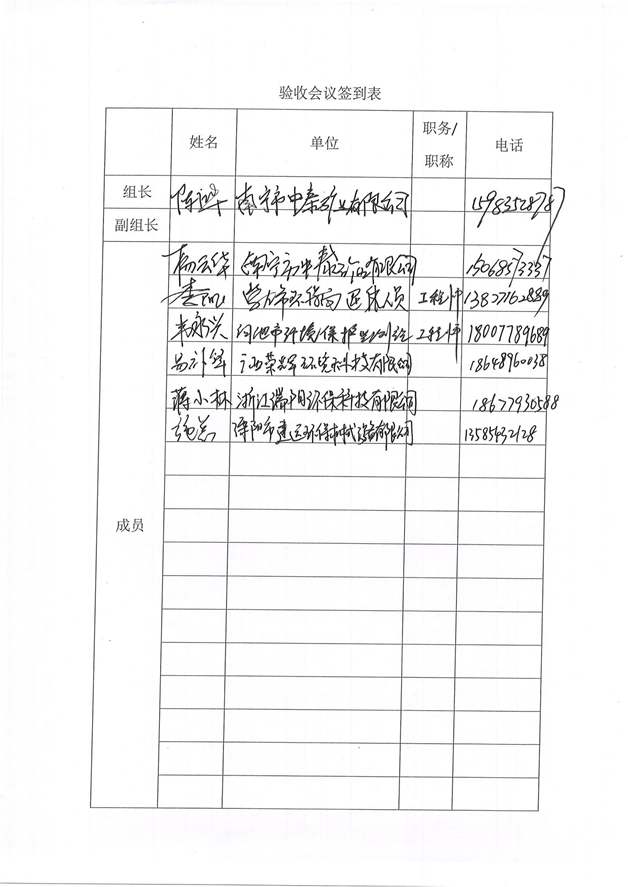 验收会议签到表
姓名 单位 职务/职称 电话
组长 陈 南宁市中泰矿业有限公司 15983528787
副组长
成员
杨云华 南宁市中 有限公司 15068573357
李 环保局退休人员 工程师 13827162889
韦永兴 河池市环境保护监测站 工程师 18007789689
环境科技有限公司 18648960038
蒋小林 浙江瑞阳环保科技有限公司 18677930588
溧阳市建达环保机械设备有限公司 13585432128